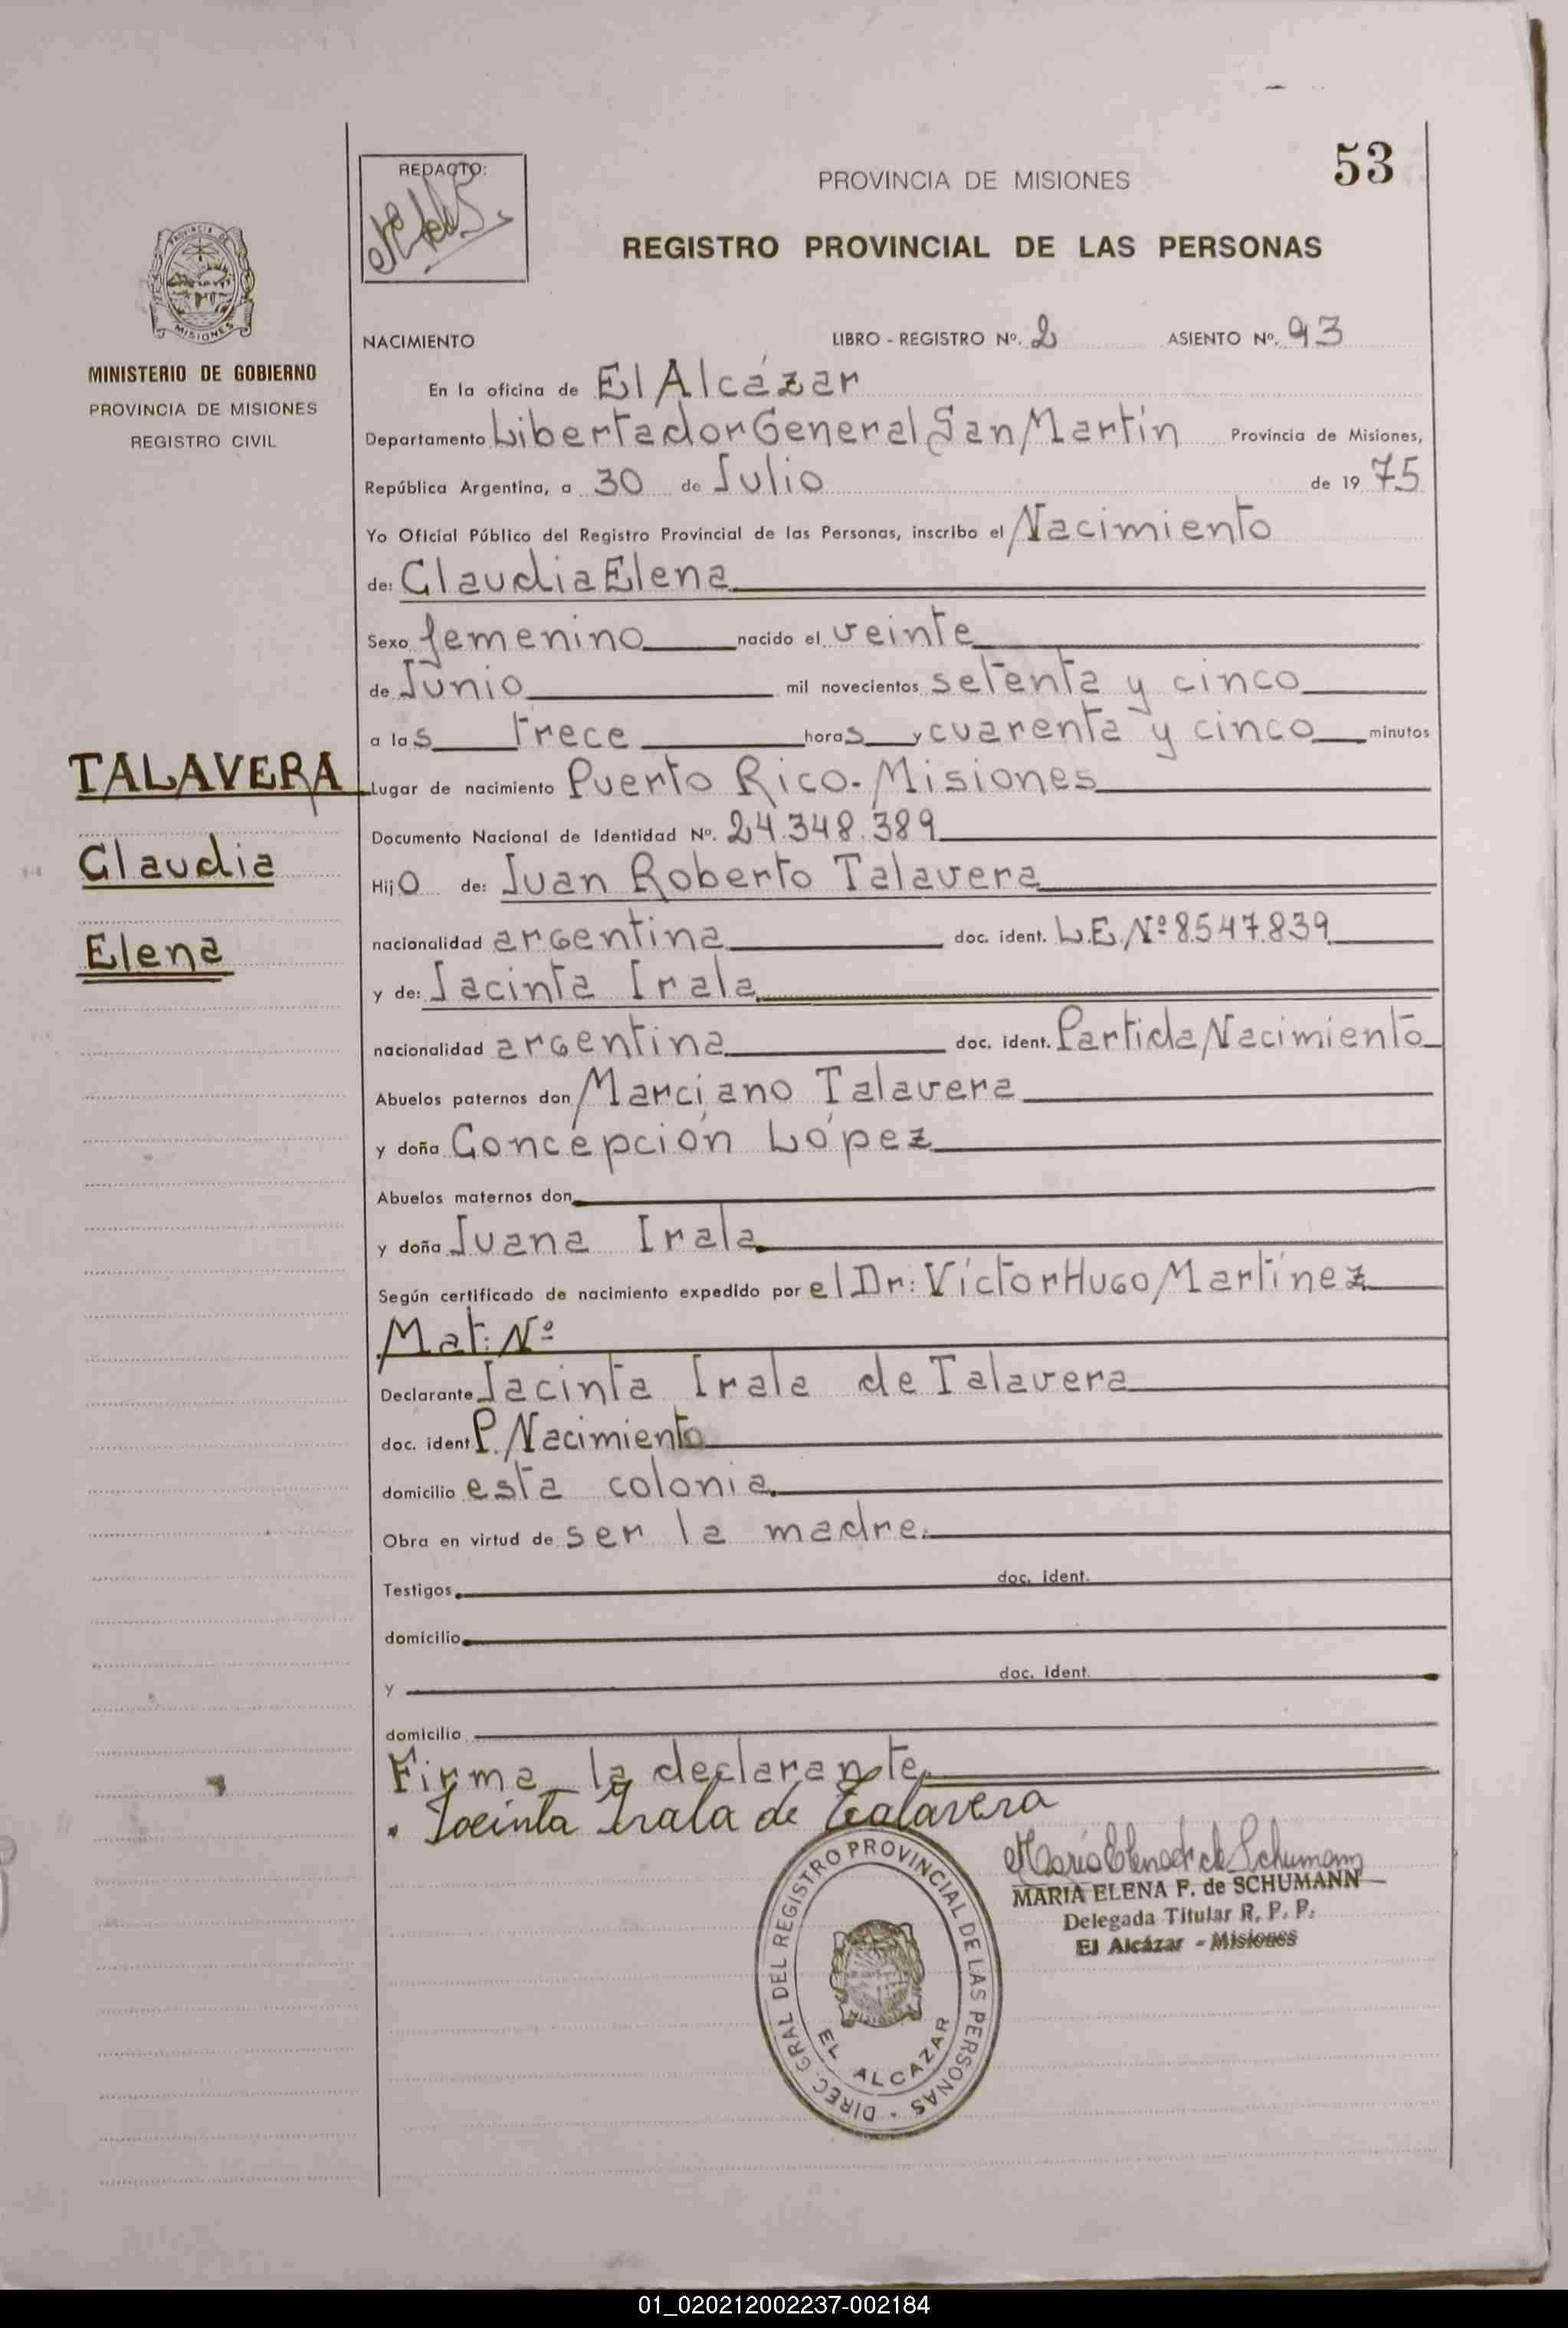 53
REDACTO:
PROVINCIA DE MISIONES
REGISTRO PROVINCIAL DE LAS PERSONAS
PROVINCIA DE
MISIONES
MINISTERIO DE GOBIERNO
PROVINCIA DE MISIONES
REGISTRO CIVIL
NACIMIENTO LIBRO - REGISTRO Nº. 2 ASIENTO Nº. 93
En la oficina de El Alcázar
Departamento Libertador General San Martín Provincia de Misiones,
República Argentina, a 30 de Julio de 19 75
Yo Oficial Público del Registro Provincial de las Personas, inscribo el Nacimiento
de: Claudia Elena
Sexo femenino nacido el veinte
de Junio mil novecientos setenta y cinco
a las trece horas y cuarenta y cinco minutos
TALAVERA
Claudia
Elena
Lugar de nacimiento Puerto Rico - Misiones
Documento Nacional de Identidad Nº. 24.348.389
Hijo de: Juan Roberto Talavera
nacionalidad argentina doc. ident. L.E. Nº 8.547.839
y de: Jacinta Irala
nacionalidad argentina doc. ident. Partida Nacimiento
Abuelos paternos don Marciano Talavera
y doña Concepción López
Abuelos maternos don
y doña Juana Irala
Según certificado de nacimiento expedido por el Dr: Víctor Hugo Martínez
Mat: Nº
Declarante Jacinta Irala de Talavera
doc. ident P. Nacimiento
domicilio esta colonia
Obra en virtud de ser la madre.
Testigos doc. ident.
domicilio
y doc. ident.
domicilio
Firma la declarante
Jacinta Irala de Talavera
María Elena F. de Schumann
MARIA ELENA F. de SCHUMANN
Delegada Titular R. P. P.
El Alcázar - Misiones
DIREC. GRAL DEL REGISTRO PROVINCIAL DE LAS PERSONAS -
MISIONES
EL ALCAZAR
01_020212002237-002184